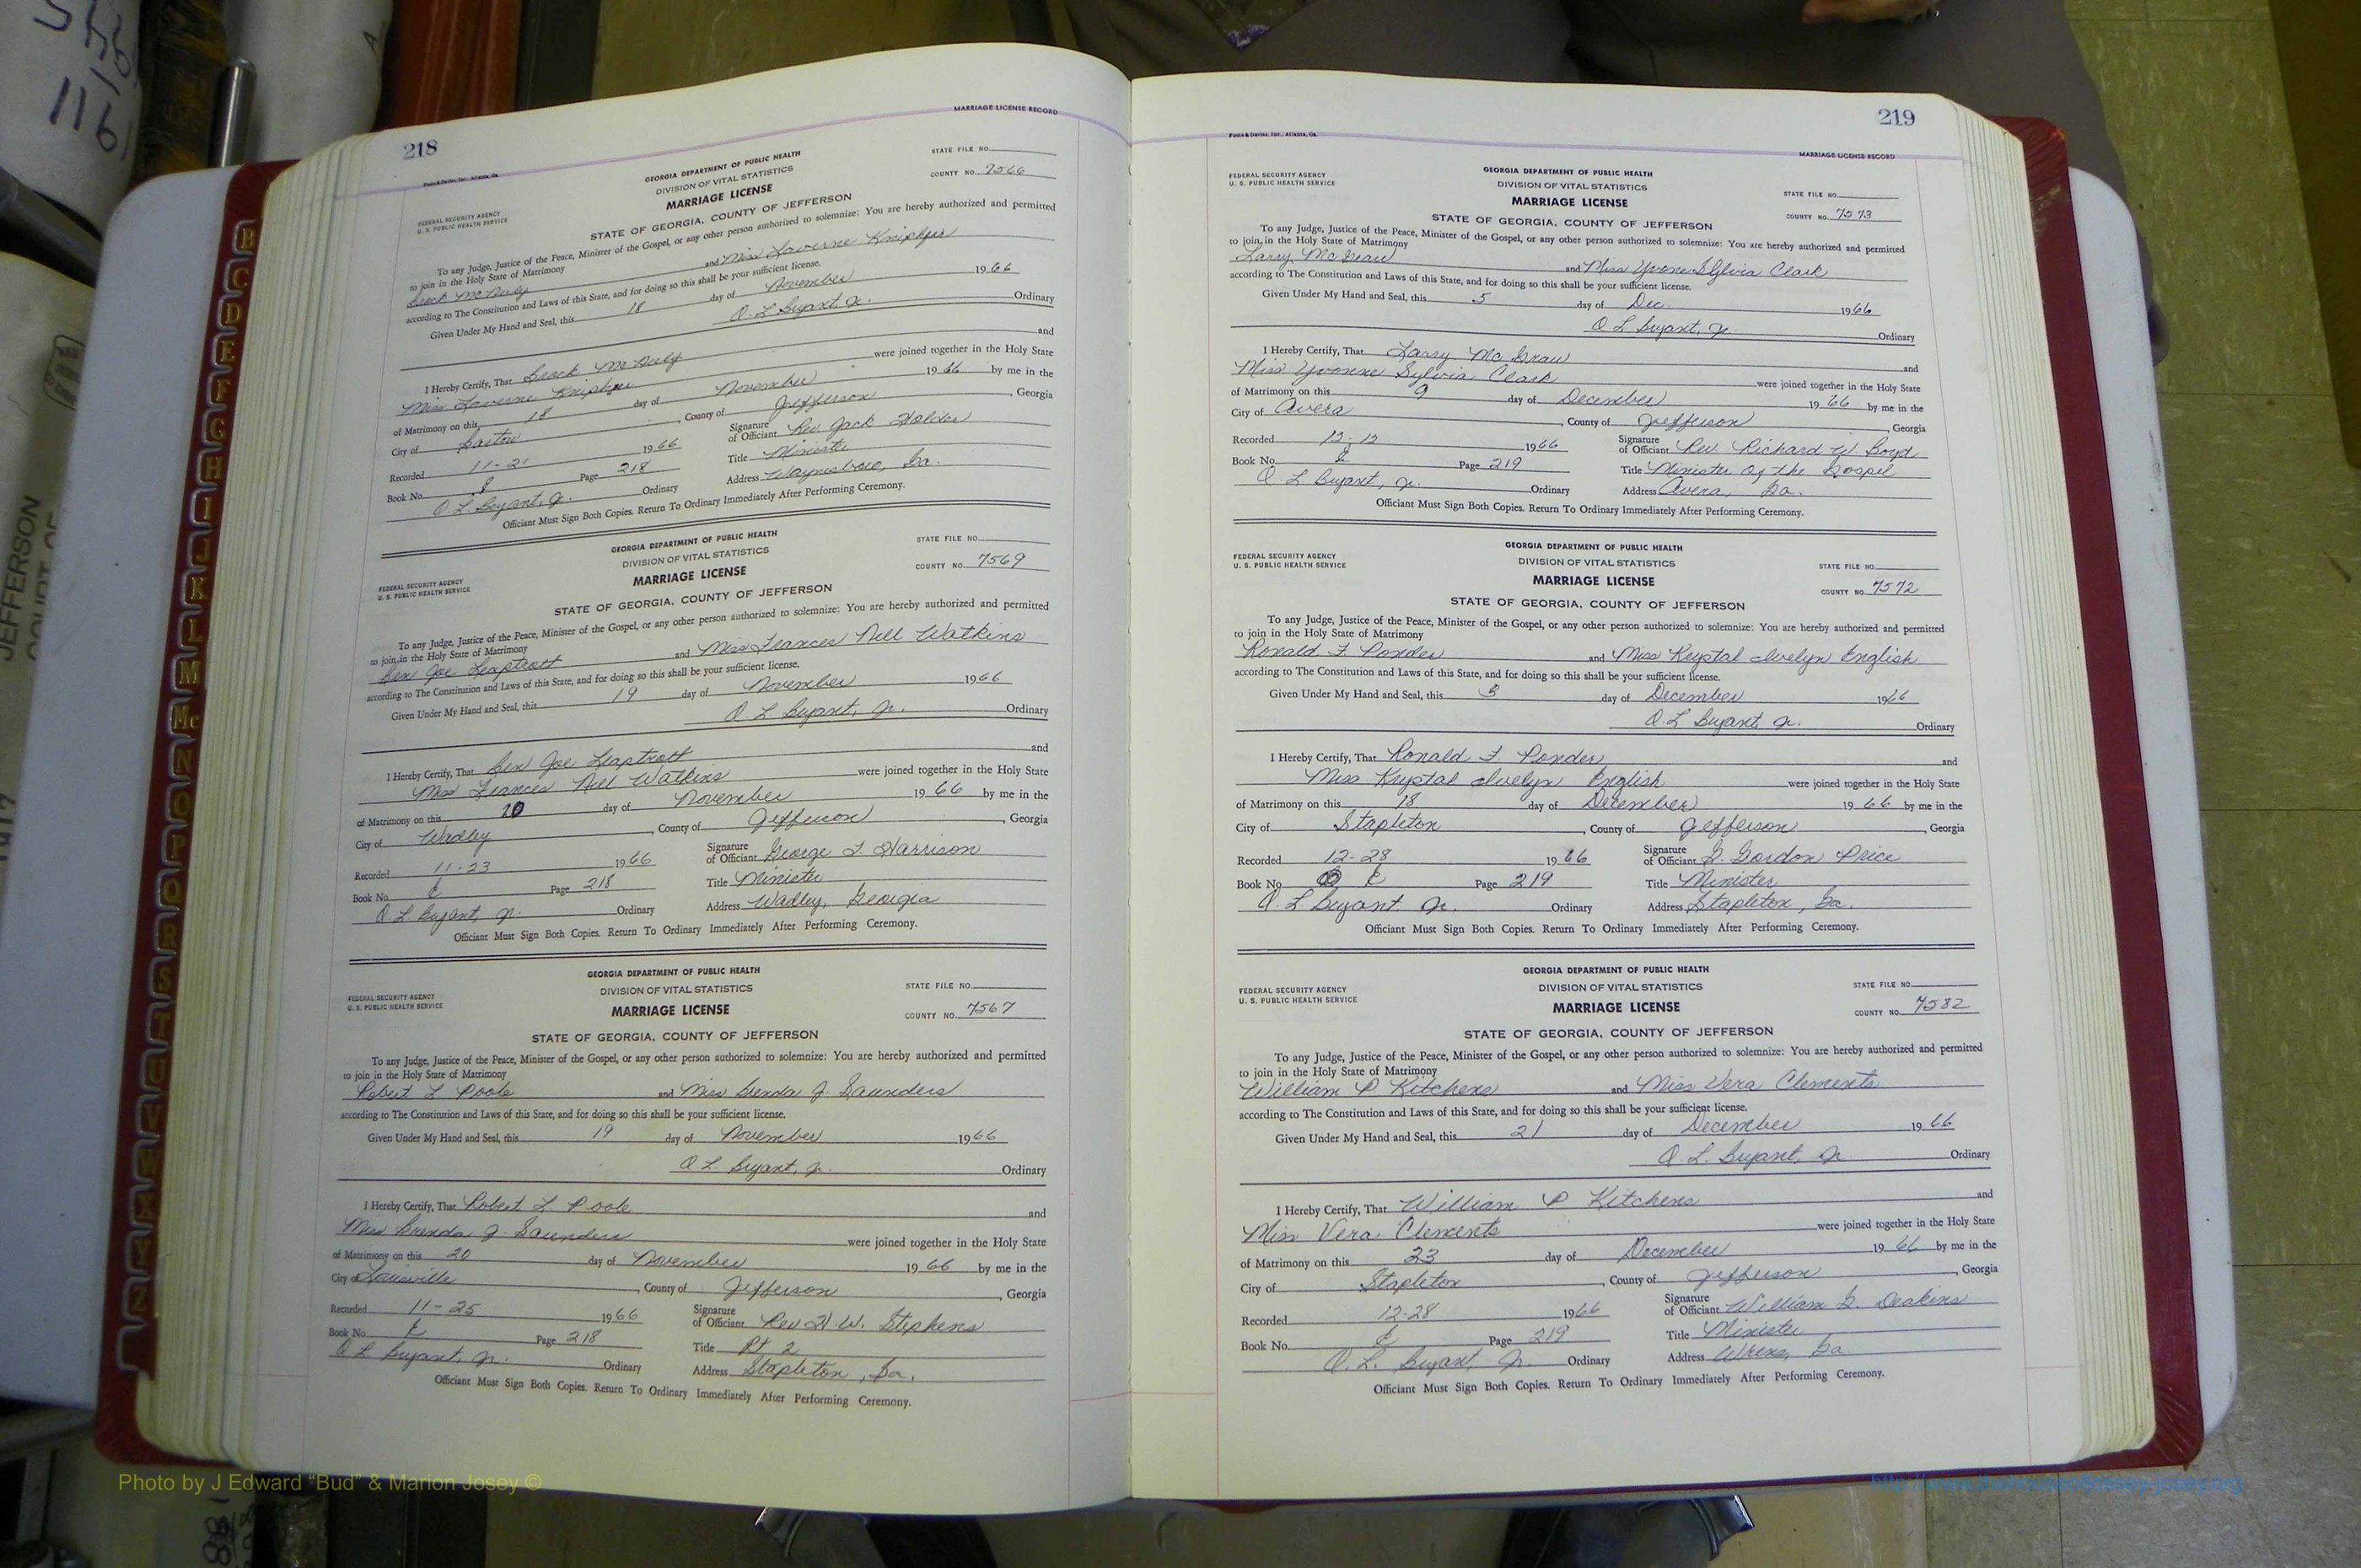 218
MARRIAGE LICENSE RECORD
Foote & Davies, Inc., Atlanta, Ga.
FEDERAL SECURITY AGENCY
U. S. PUBLIC HEALTH SERVICE
GEORGIA DEPARTMENT OF PUBLIC HEALTH
DIVISION OF VITAL STATISTICS
MARRIAGE LICENSE
STATE OF GEORGIA, COUNTY OF JEFFERSON
STATE FILE NO.
COUNTY NO. 7566
To any Judge, Justice of the Peace, Minister of the Gospel, or any other person authorized to solemnize: You are hereby authorized and permitted
to join in the Holy State of Matrimony
and Miss Laverne
according to The Constitution and Laws of this State, and for doing so this shall be your sufficient license.
Given Under My Hand and Seal, this 18 day of November 1966
O. L. Bryant, Jr. Ordinary
I Hereby Certify, That and
Miss Laverne were joined together in the Holy State
of Matrimony on this 18 day of November 1966 by me in the
City of Bartow, County of Jefferson, Georgia
Recorded 11-21 1966 Signature of Officiant Rev. Jack Holder
Book No. Page 218 Title Minister
O. L. Bryant, Jr. Ordinary Address Waynesboro, Ga.
Officiant Must Sign Both Copies. Return To Ordinary Immediately After Performing Ceremony.
FEDERAL SECURITY AGENCY
U. S. PUBLIC HEALTH SERVICE
GEORGIA DEPARTMENT OF PUBLIC HEALTH
DIVISION OF VITAL STATISTICS
MARRIAGE LICENSE
STATE OF GEORGIA, COUNTY OF JEFFERSON
STATE FILE NO.
COUNTY NO. 7569
To any Judge, Justice of the Peace, Minister of the Gospel, or any other person authorized to solemnize: You are hereby authorized and permitted
to join in the Holy State of Matrimony
Ben Joe Leaptrott and Miss Frances Nell Watkins
according to The Constitution and Laws of this State, and for doing so this shall be your sufficient license.
Given Under My Hand and Seal, this 19 day of November 1966
O. L Bryant, Jr. Ordinary
I Hereby Certify, That Ben Joe Leaptrott and
Miss Frances Nell Watkins were joined together in the Holy State
of Matrimony on this 20 day of November 1966 by me in the
City of Wadley, County of Jefferson, Georgia
Recorded 11-23 1966 Signature of Officiant George L. Harrison
Book No. Page 218 Title Minister
O L Bryant, Jr. Ordinary Address Wadley, Georgia
Officiant Must Sign Both Copies. Return To Ordinary Immediately After Performing Ceremony.
FEDERAL SECURITY AGENCY
U. S. PUBLIC HEALTH SERVICE
GEORGIA DEPARTMENT OF PUBLIC HEALTH
DIVISION OF VITAL STATISTICS
MARRIAGE LICENSE
STATE OF GEORGIA, COUNTY OF JEFFERSON
STATE FILE NO.
COUNTY NO. 7567
To any Judge, Justice of the Peace, Minister of the Gospel, or any other person authorized to solemnize: You are hereby authorized and permitted
to join in the Holy State of Matrimony
Robert L Poole and Miss Brenda J. Saunders
according to The Constitution and Laws of this State, and for doing so this shall be your sufficient license.
Given Under My Hand and Seal, this 19 day of November 1966
O L. Bryant, Jr. Ordinary
I Hereby Certify, That Robert L Poole and
Miss Brenda J. Saunders were joined together in the Holy State
of Matrimony on this 20 day of November 1966 by me in the
City of Louisville, County of Jefferson, Georgia
Recorded 11-25 1966 Signature of Officiant Rev H. W. Stephens
Book No. Page 218 Title Rt 2
O L. Bryant, Jr. Ordinary Address Stapleton, Ga.
Officiant Must Sign Both Copies. Return To Ordinary Immediately After Performing Ceremony.
219
Foote & Davies, Inc., Atlanta, Ga.
MARRIAGE LICENSE RECORD
FEDERAL SECURITY AGENCY
U. S. PUBLIC HEALTH SERVICE
GEORGIA DEPARTMENT OF PUBLIC HEALTH
DIVISION OF VITAL STATISTICS
MARRIAGE LICENSE
STATE OF GEORGIA, COUNTY OF JEFFERSON
STATE FILE NO.
COUNTY NO. 7573
To any Judge, Justice of the Peace, Minister of the Gospel, or any other person authorized to solemnize: You are hereby authorized and permitted
to join in the Holy State of Matrimony
Larry McGraw and Miss Yvonne Sylvia Clark
according to The Constitution and Laws of this State, and for doing so this shall be your sufficient license.
Given Under My Hand and Seal, this 5 day of Dec. 1966
O L Bryant, Jr Ordinary
I Hereby Certify, That Larry McGraw and
Miss Yvonne Sylvia Clark were joined together in the Holy State
of Matrimony on this 9 day of December 1966 by me in the
City of Avera, County of Jefferson, Georgia
Recorded 12-12 1966 Signature of Officiant Rev. Richard W Boyd
Book No. Page 219 Title Minister of the Gospel
O L Bryant, Jr. Ordinary Address Avera, Ga.
Officiant Must Sign Both Copies. Return To Ordinary Immediately After Performing Ceremony.
FEDERAL SECURITY AGENCY
U. S. PUBLIC HEALTH SERVICE
GEORGIA DEPARTMENT OF PUBLIC HEALTH
DIVISION OF VITAL STATISTICS
MARRIAGE LICENSE
STATE OF GEORGIA, COUNTY OF JEFFERSON
STATE FILE NO.
COUNTY NO. 7572
To any Judge, Justice of the Peace, Minister of the Gospel, or any other person authorized to solemnize: You are hereby authorized and permitted
to join in the Holy State of Matrimony
Ronald F Ponder and Miss Krystal Evelyn English
according to The Constitution and Laws of this State, and for doing so this shall be your sufficient license.
Given Under My Hand and Seal, this 3 day of December 1966
O. L Bryant Jr. Ordinary
I Hereby Certify, That Ronald F. Ponder and
Miss Krystal Evelyn English were joined together in the Holy State
of Matrimony on this 18 day of December 1966 by me in the
City of Stapleton, County of Jefferson, Georgia
Recorded 12-28 1966 Signature of Officiant G. Gordon Price
Book No. Page 219 Title Minister
O. L Bryant Jr. Ordinary Address Stapleton, Ga.
Officiant Must Sign Both Copies. Return To Ordinary Immediately After Performing Ceremony.
FEDERAL SECURITY AGENCY
U. S. PUBLIC HEALTH SERVICE
GEORGIA DEPARTMENT OF PUBLIC HEALTH
DIVISION OF VITAL STATISTICS
MARRIAGE LICENSE
STATE OF GEORGIA, COUNTY OF JEFFERSON
STATE FILE NO.
COUNTY NO. 7582
To any Judge, Justice of the Peace, Minister of the Gospel, or any other person authorized to solemnize: You are hereby authorized and permitted
to join in the Holy State of Matrimony
William P Kitchens and Miss Vera Clements
according to The Constitution and Laws of this State, and for doing so this shall be your sufficient license.
Given Under My Hand and Seal, this 21 day of December 1966
O. L. Bryant, Jr. Ordinary
I Hereby Certify, That William P Kitchens and
Miss Vera Clements were joined together in the Holy State
of Matrimony on this 23 day of December 1966 by me in the
City of Stapleton, County of Jefferson, Georgia
Recorded 12-28 1966 Signature of Officiant William G. Deakins
Book No. Page 219 Title Minister
O. L. Bryant, Jr. Ordinary Address Wrens, Ga.
Officiant Must Sign Both Copies. Return To Ordinary Immediately After Performing Ceremony.
B
C
D
E
F
G
H
I
J
K
L
M
Mc
N
O
P
Q
R
S
T
U
V
W
X
Y
Z
JEFFERSON
COURT OF
116
Photo by J Edward “Bud” & Marion Josey ©